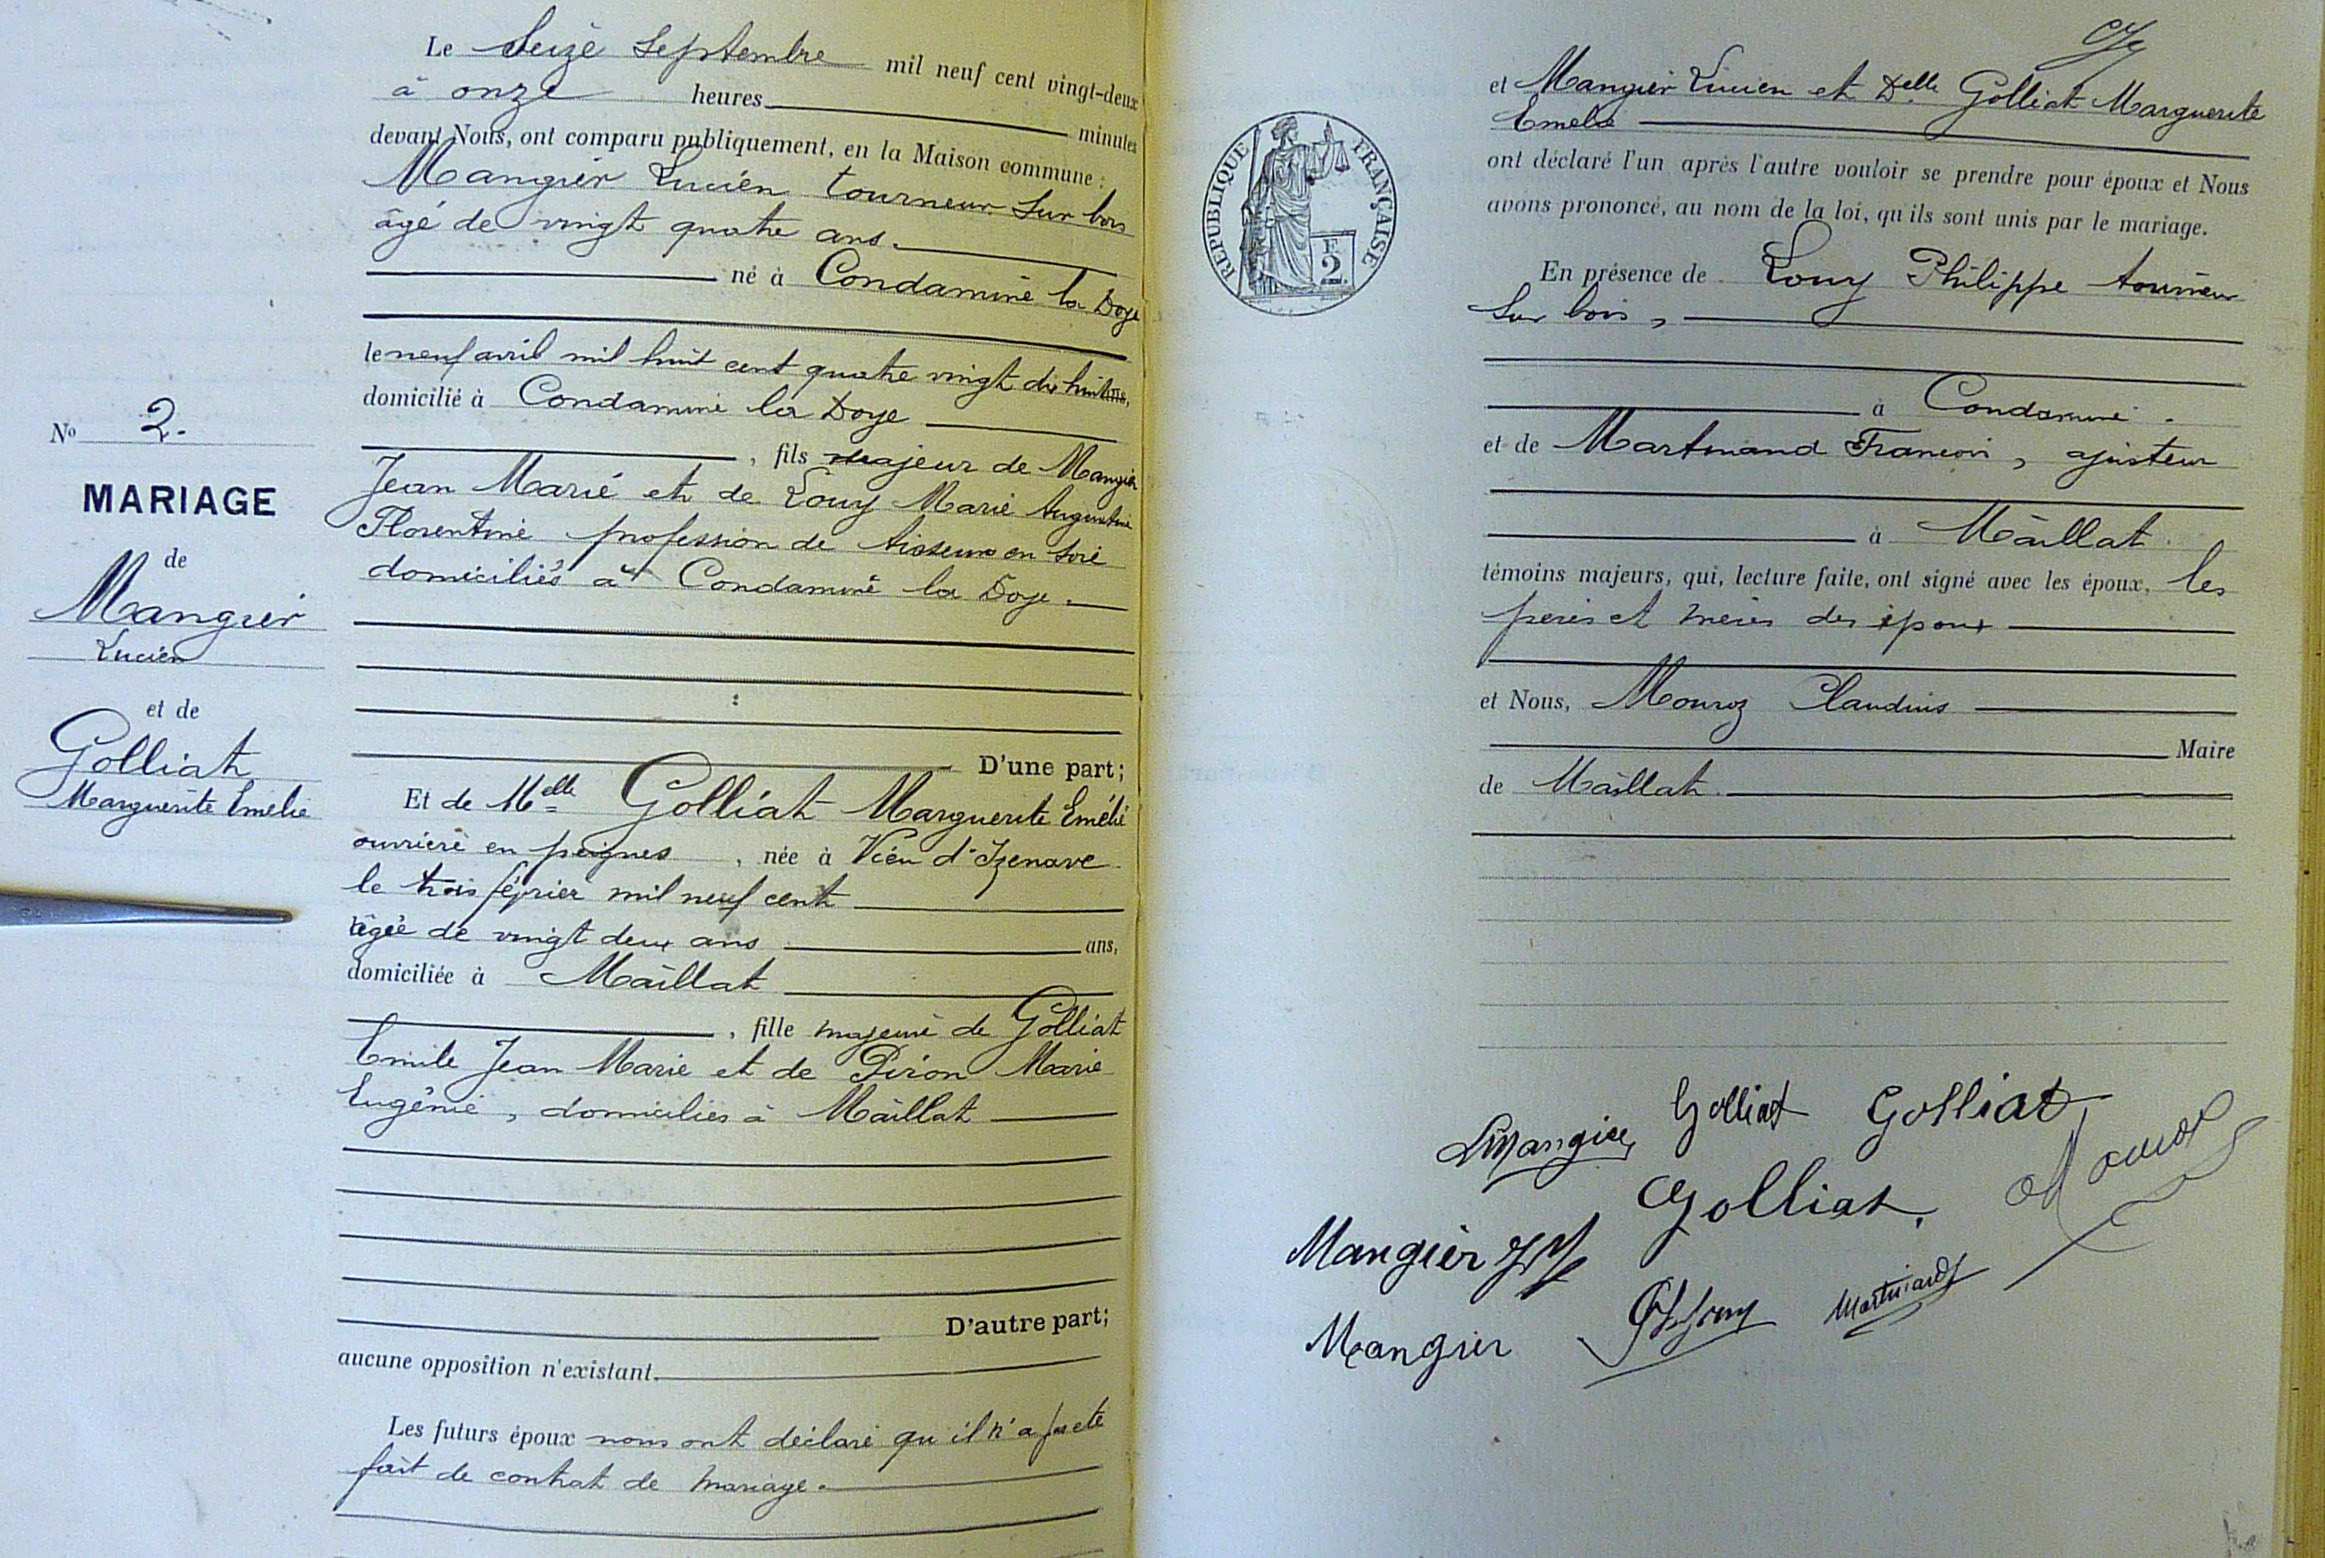 Le Seize Septembre mil neuf cent vingt-deux
à onze heures minutes
devant Nous, ont comparu publiquement, en la Maison commune :
Mangier Lucien tourneur sur bois
âgé de vingt quatre ans
né à Condamine la Doye
le neuf avril mil huit cent quatre vingt dix huit ans,
domicilié à Condamine la Doye
, fils majeur de Mangier
Jean Marie et de Louy Marie Augustine
Florentine profession de tisseurs en soie
domiciliés à Condamine la Doye.
D'une part;
Et de Melle Golliat Marguerite Emélie
ouvrière en peignes, née à Vieu d'Izenave
le trois février mil neuf cent
âgée de vingt deux ans ans,
domiciliée à Maillat
, fille majeure de Golliat
Emile Jean Marie et de Piron Marie
Eugénie, domiciliés à Maillat
D'autre part;
aucune opposition n'existant.
Les futurs époux nous ont déclaré qu'il n'a pas été
fait de contrat de mariage.
No 2.
MARIAGE
de
Mangier
Lucien
et de
Golliat
Marguerite Emélie
et Mangier Lucien et Delle Golliat Marguerite
Emelie
ont déclaré l'un après l'autre vouloir se prendre pour époux et Nous
avons prononcé, au nom de la loi, qu'ils sont unis par le mariage.
En présence de Louy Philippe tourneur
sur bois,
à Condamine.
et de Martinand François, ajusteur
à Maillat.
témoins majeurs, qui, lecture faite, ont signé avec les époux, les
pères et mères des époux
et Nous, Mouroz Claudius
Maire
de Maillat
RÉPUBLIQUE FRANÇAISE
F.
2
LMangier Golliat Golliat
Golliat.
Mangier
Mangier Martinand